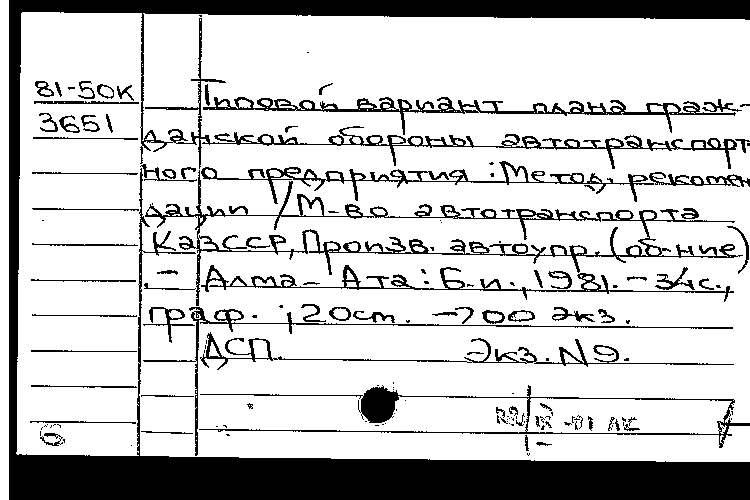 81-50К
3651
Типовой вариант плана граж-
данской обороны автотранспорт-
ного предприятия : Метод. рекомен
дации / М-во автотранспорта
КазССР, Произв. автоупр. (об-ние)
. – Алма-Ата : Б.и., 1981. – 34с.,
граф. ; 20см. – 700 экз.
ДСП. Экз. N 9.
6